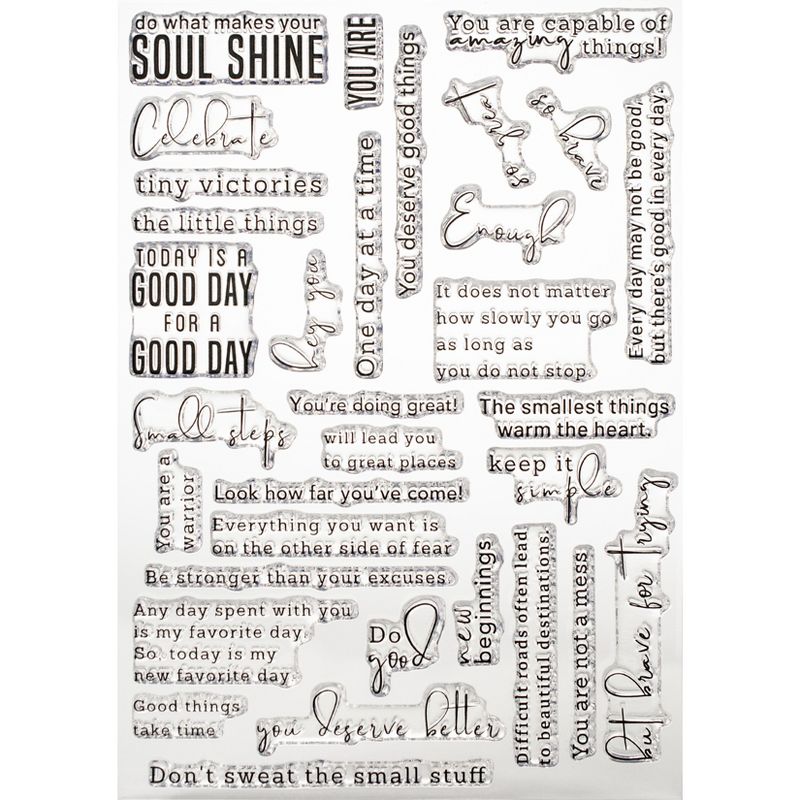 do what makes your
SOUL SHINE
YOU ARE
You are capable of
amazing things!
Celebrate
tiny victories
the little things
TODAY IS A
GOOD DAY
FOR A
GOOD DAY
hey you
One day at a time
You deserve good things
so brave
Enough
Every day may not be good,
but there's good in every day.
It does not matter
how slowly you go
as long as
you do not stop.
Small steps
You're doing great!
The smallest things
warm the heart.
will lead you
to great places
keep it
simple
You are a
warrior
Look how far you've come!
Everything you want is
on the other side of fear
Be stronger than your excuses.
Any day spent with you
is my favorite day.
So, today is my
new favorite day.
Do
good
new
beginnings
Difficult roads often lead
to beautiful destinations.
You are not a mess
but brave for trying
Good things
take time
you deserve better
Don't sweat the small stuff